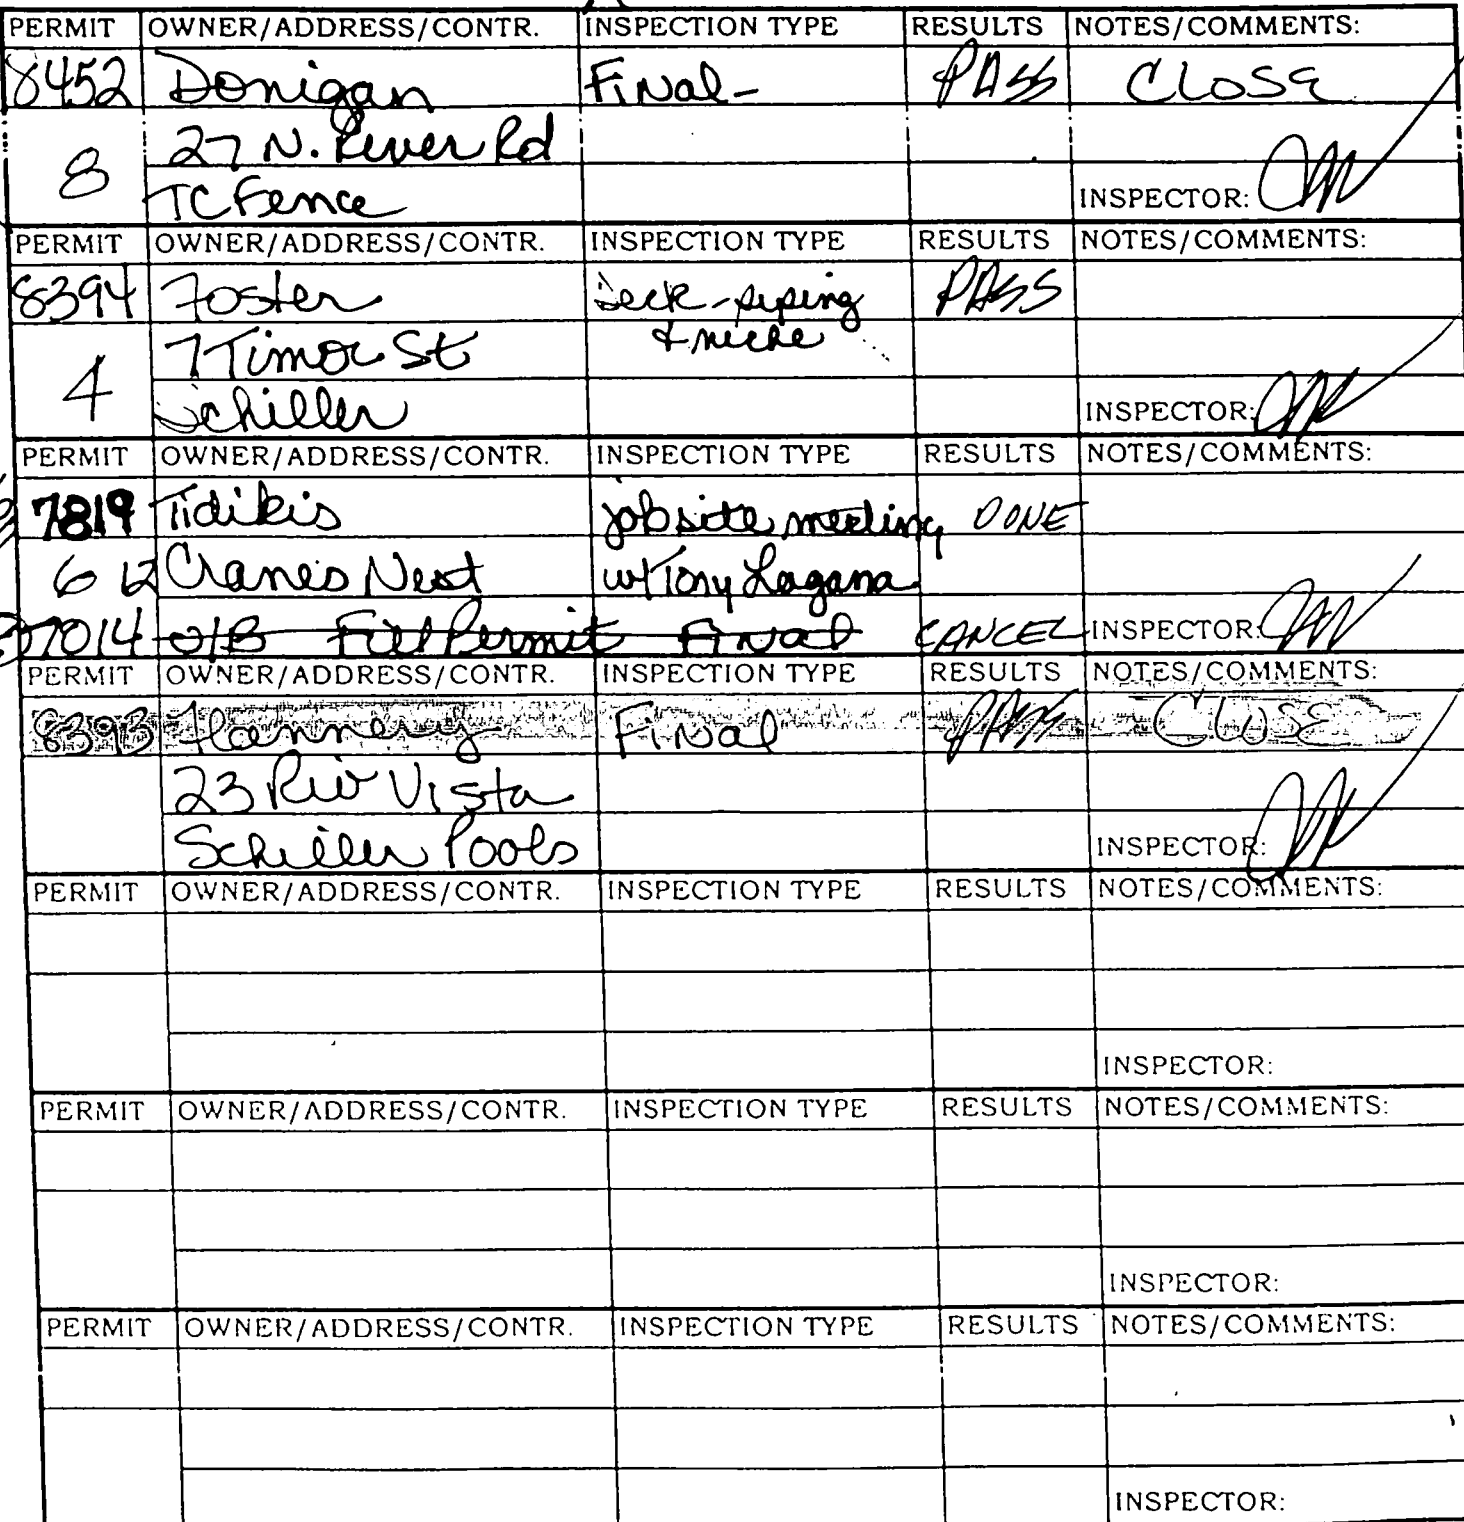 PERMIT OWNER/ADDRESS/CONTR. INSPECTION TYPE RESULTS NOTES/COMMENTS:
8452 Donigan Final- PASS CLOSE
27 N. River Rd
8
TC Fence INSPECTOR:
PERMIT OWNER/ADDRESS/CONTR. INSPECTION TYPE RESULTS NOTES/COMMENTS:
8394 Foster Deck-piping PASS
7 Timor St & niche
4
Schiller INSPECTOR:
PERMIT OWNER/ADDRESS/CONTR. INSPECTION TYPE RESULTS NOTES/COMMENTS:
7819 Tidikis jobsite meeting DONE
6 12 Cranes Nest w/Tony Lagana
7014 O/B Fill Permit Final CANCEL INSPECTOR:
PERMIT OWNER/ADDRESS/CONTR. INSPECTION TYPE RESULTS NOTES/COMMENTS:
8393 Flannery Final PASS CLOSE
23 Rio Vista
Schiller Pools INSPECTOR:
PERMIT OWNER/ADDRESS/CONTR. INSPECTION TYPE RESULTS NOTES/COMMENTS:
INSPECTOR:
PERMIT OWNER/ADDRESS/CONTR. INSPECTION TYPE RESULTS NOTES/COMMENTS:
INSPECTOR:
PERMIT OWNER/ADDRESS/CONTR. INSPECTION TYPE RESULTS NOTES/COMMENTS:
INSPECTOR: